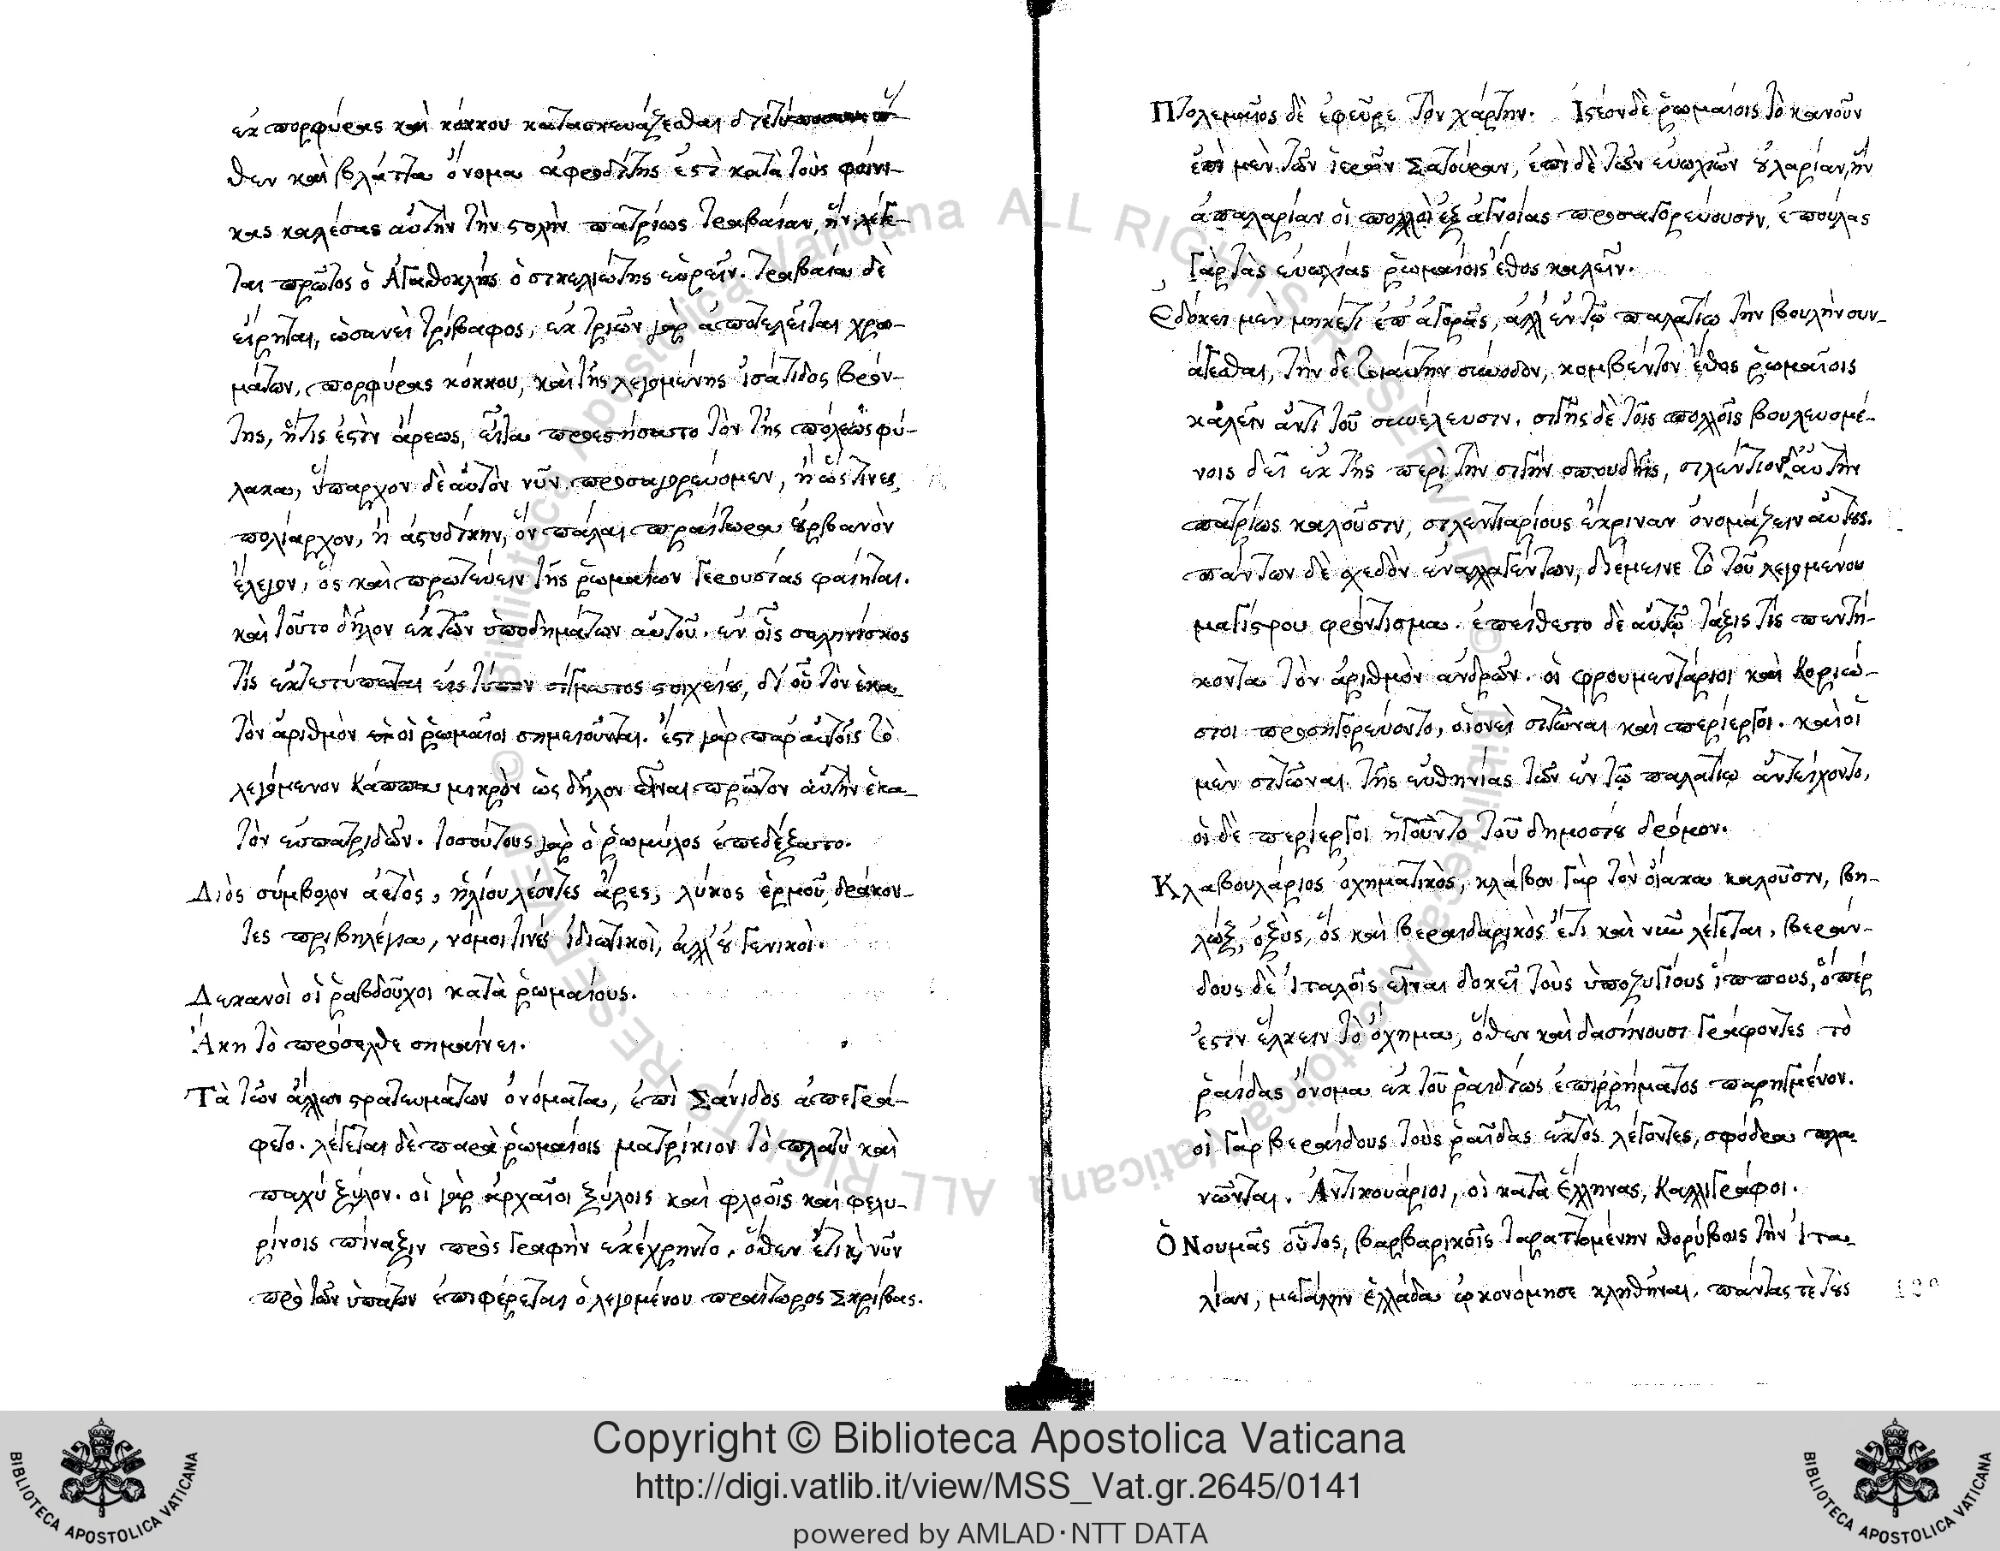 ἐκ πορφύρας καὶ κόκκου κατασκευάζεσθαι ὅ
θεν καὶ βλάττα ὄνομα ἀφροδίτης ἐστὶ κατὰ τοὺς φοίνι-
κας καλέσας αὐτὴν τὴν στολὴν πατρίως τραβαίαν, ἣν λέγε-
ται πρῶτος ὁ Ἀγαθοκλῆς ὁ σικελιώτης εὑρεῖν. τραβαία δὲ
εἴρηται, ὡσανεὶ τρίβαφος, ἐκ τριῶν γὰρ ἀποτελεῖται χρω-
μάτων, πορφύρας κόκκου, καὶ τῆς λεγομένης ἰσάτιδος βρον-
της, ἥτις ἐστὶν ἄρεως, εἶτα προεστήσατο τὸν τῆς πόλεως φύ-
λακα, ὕπαρχον δὲ αὐτὸν νῦν προσαγορεύομεν, ἢ ὥς τινες,
πολίαρχον, ἢ ἀστυδίκην, ὃν πάλαι πραίτωρα οὐρβανὸν
ἔλεγον, ὃς καὶ πρωτεύειν τῆς ῥωμαίων γερουσίας φαίνεται.
καὶ τοῦτο δῆλον ἐκ τῶν ὑποδημάτων αὐτοῦ. ἐν οἷς σεληνίσκος
τίς ἐκτετύπωται εἰς τύπον σίγματος στοιχείου, δι' οὗ τὸν ἑκα-
τὸν ἀριθμὸν οἱ ῥωμαῖοι σημειοῦνται. ἔστι γὰρ παρ' αὐτοῖς τὸ
λεγόμενον Κάππα μικρὸν ὡς δῆλον εἶναι πρῶτον αὐτὴν ἑκα-
τὸν εὐπατριδῶν. τοσούτους γὰρ ὁ ῥωμύλος ἐπεδέξατο.
Διὸς σύμβολον ἀετὸς, ἡλίου λέοντες ἄρες, λύκος ἑρμοῦ, δράκον-
τες πριβηλέγια, νόμοι τινὲς ἰδιωτικοὶ, ἀλλ' οὐ γενικοὶ.
Δεκανοὶ οἱ ῥαβδοῦχοι κατὰ ῥωμαίους.
Ἄκη τὸ πρόσελθε σημαίνει.
Τὰ τῶν ἄλλων στρατευμάτων ὀνόματα, ἐπὶ Σάνιδος ἀπεγρά-
φετο. λέγεται δὲ παρὰ ῥωμαίοις ματρίκιον τὸ πλατὺ καὶ
παχὺ ξύλον. οἱ γὰρ ἀρχαῖοι ξύλοις καὶ φλοοῖς καὶ φιλυ-
ρίνοις πίναξιν πρὸς γραφὴν ἐκέχρηντο. ὅθεν ἔτι καὶ νῦν
πρὸ τῶν ὑπάτων ἐπιφέρεται ὁ λεγομένου πραίτωρος Σκρίβας.
Πτολεμαῖος δὲ ἐφεῦρε τὸν χάρτην. Ἰστέον δὲ ῥωμαίοις τὸ κανοῦν
ἐπὶ μὲν τῶν ἱερῶν Σατούραν, ἐπὶ δὲ τῶν εὐωχιῶν οὐλαρίαν, ἣν
ἀπαλαρίαν οἱ πολλοὶ ἐξ ἀγνοίας προσαγορεύουσιν, ἐπούλας
γὰρ τὰς εὐωχίας ῥωμαίοις ἔθος καλεῖν.
Ἐδόκει μὲν μηκέτι ἐπ' ἀγορᾶς, ἀλλ' ἐν τῷ παλατίῳ τὴν βουλὴν συν-
άγεσθαι, τὴν δὲ τοιαύτην σύνοδον, κομβέντον ἔθος ῥωμαίοις
καλεῖν ἀντὶ τοῦ συνέλευσιν. σιγῆς δὲ τοῖς πολλοῖς βουλευομέ-
νοις δεῖ ἐκ τῆς περὶ τὴν σιγὴν σπουδῆς, σιλέντιον αὐτὴν
πατρίως καλοῦσιν, σιλεντιαρίους ἔκριναν ὀνομάζειν αὐτούς.
πάντων δὲ σχεδὸν ἐναλλαγέντων, διέμεινε τὸ τοῦ λεγομένου
μαγίστρου φρόντισμα. ἐπείθετο δὲ αὐτῷ τάξις τίς πεντή-
κοντα τὸν ἀριθμὸν ἀνδρῶν. οἱ φρουμεντάριοι καὶ Κοριώ-
σιοι προσηγορεύοντο, οἱονεὶ σιτῶναι καὶ περίεργοι. καὶ οἱ
μὲν σιτῶναι τῆς εὐθηνίας τῶν ἐν τῷ παλατίῳ ἀντείχοντο,
οἱ δὲ περίεργοι ἡγοῦντο τοῦ δημοσίου δρόμον.
Κλαβουλάριος ὀχηματικὸς, κλάβον γὰρ τὸν οἴακα καλοῦσιν, βη-
λώξ, ὀξὺς, ὃς καὶ βεραιδαρικὸς ἔτι καὶ νῦν λέγεται, βεραί-
δους δὲ Ἰταλοῖς εἶναι δοκεῖ τοὺς ὑποζυγίους ἵππους, ὅπερ
ἐστιν ἕλκειν τὸ ὄχημα, ὅθεν καὶ δασύνουσι γράφοντες τὸ
ῥαίδας ὄνομα ἐκ τοῦ ῥαιδίως ἐπιρρήματος παρηγμένον.
οἱ γὰρ βεραίδους τοὺς ῥαῖδας ἐκτὸς λέγοντες, σφόδρα πλα-
νῶνται. Ἀντικουάριοι, οἱ κατὰ Ἕλληνας, Καλλιγράφοι.
Ὁ Νουμᾶς οὗτος, βαρβαρικοῖς ταραττομένην θορύβοις τὴν Ἰτα-
λίαν, μεγάλην ἑλλάδα ᾠκονόμησε κληθῆναι, πάντας τὲ τοὺς
Copyright © Biblioteca Apostolica Vaticana
http://digi.vatlib.it/view/MSS_Vat.gr.2645/0141
powered by AMLAD·NTT DATA
BIBLIOTECA APOSTOLICA VATICANA
BIBLIOTECA APOSTOLICA VATICANA